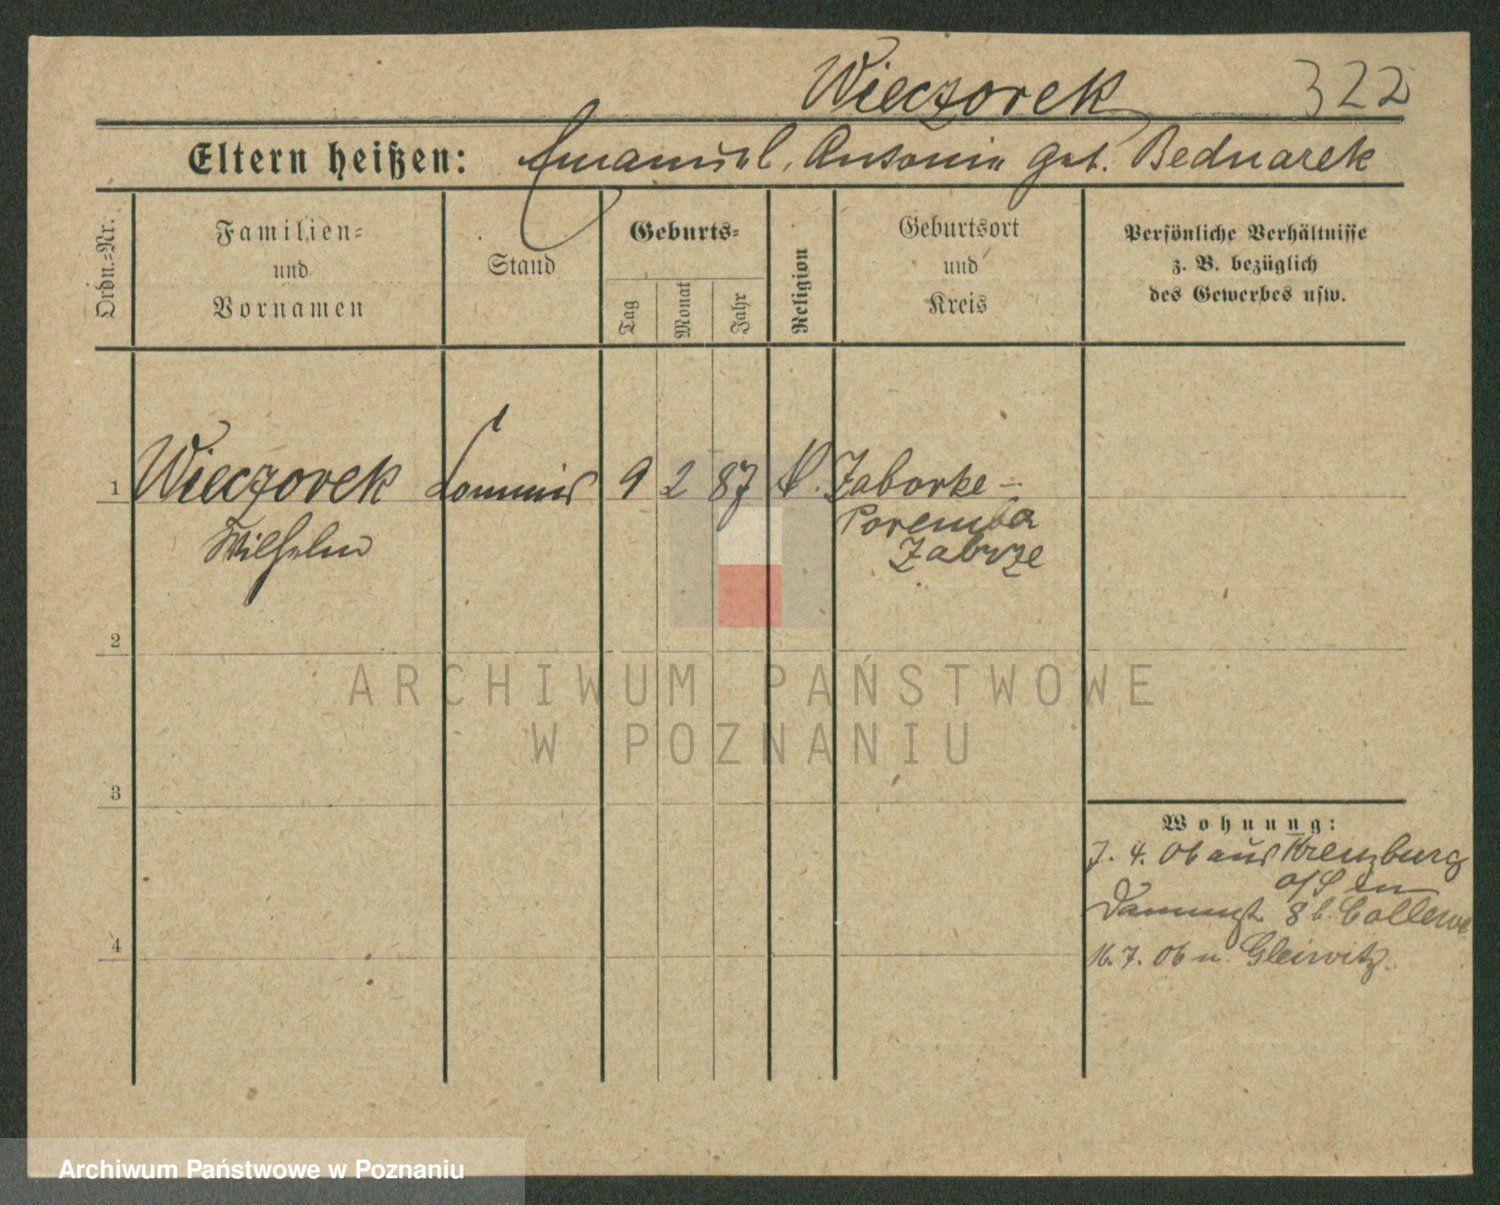 Wieczorek 322
Eltern heißen: Emanuel, Antonie geb. Bednarek
Ordn.-Nr.
Familien-
und
Vornamen
Stand
Geburts-
Tag
Monat
Jahr
Religion
Geburtsort
und
Kreis
Persönliche Verhältnisse
z. B. bezüglich
des Gewerbes usw.
1 Wieczorek Commis 9 2 87 K. Zaborke-
Wilhelm Poremba
Zabrze
2
ARCHIWUM PAŃSTWOWE
W POZNANIU
3
Wohnung:
7. 4. 06 aus Kreuzburg
o/S
8 b.
4
16. 7. 06 n. Gleiwitz.
Archiwum Państwowe w Poznaniu